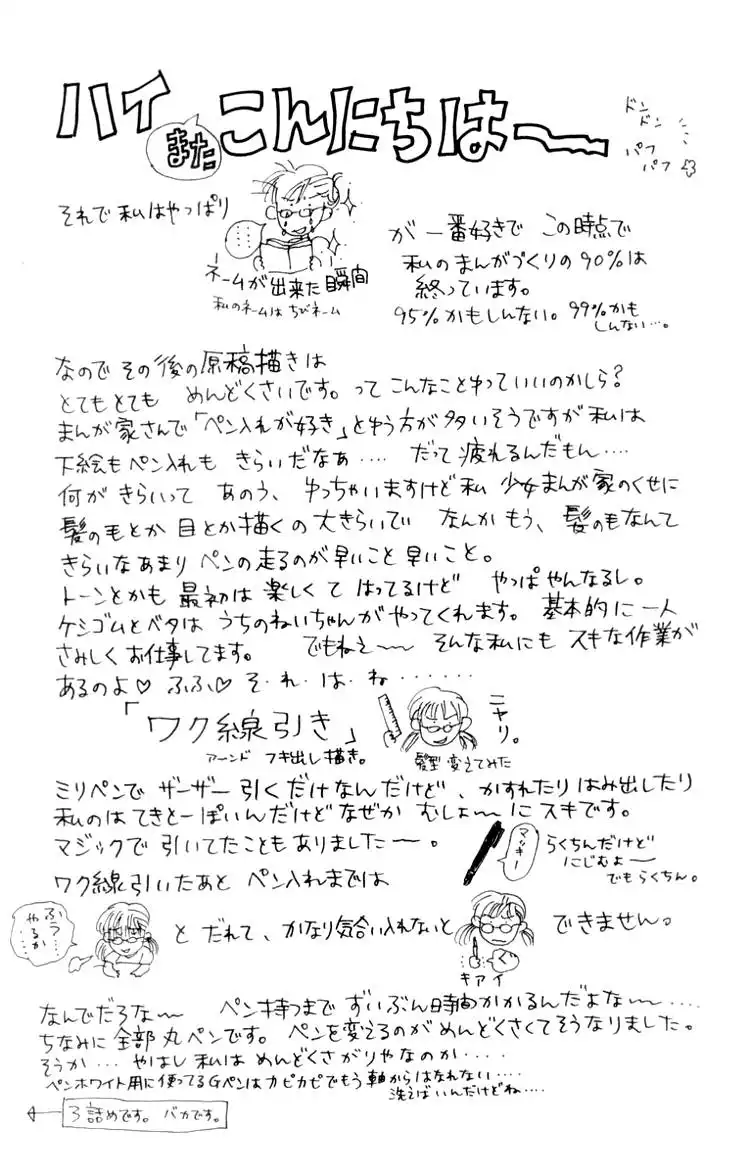 ハイ
また
こんにちは〜
ドン
ドン
パフ
パフ
それで私はやっぱり
ネームが出来た瞬間
私のネームはちびネーム
が一番好きで この時点で
私のまんがづくりの90%は
終っています。
95%かもしんない。99%かも
しんない…。
なのでその後の原稿描きは
とてもとても めんどくさいです。ってこんなことゆっていいのかしら?
まんが家さんで「ペン入れが好き」とゆう方が多いそうですが私は
下絵もペン入れも きらいだなあ‥‥ だって疲れるんだもん‥‥
何がきらいって あのう、ゆっちゃいますけど私 少女まんが家のくせに
髪の毛とか目とか描くの大きらいで なんかもう、髪の毛なんて
きらいなあまりペンの走るのが早いこと早いこと。
トーンとかも最初は楽しくてはってるけど やっぱやんなるし。
ケシゴムとベタはうちのねいちゃんがやってくれます。基本的に一人
さみしくお仕事してます。 でもねえ〜 そんな私にもスキな作業が
あるのよ♡ ふふ♡ そ・れ・は・ね‥‥‥‥
「ワク線引き」
アーンド フキ出し描き。
ニヤリ。
髪型変えてみた
ミリペンでザーザー引くだけなんだけど、かすれたりはみ出したり
私のはてきとーぽいんだけどなぜか むしょ〜にスキです。
マジックで引いてたこともありました〜。
マッキー
らくちんだけど
にじむよ〜
でもらくちん。
ワク線引いたあと ペン入れまでは
ふう…
やるか…
とだれて、かなり気合い入れないと
キアイ
できません。
なんでだろな〜 ペン持つまでずいぶん時間かかるんだよな〜‥‥
ちなみに全部丸ペンです。ペンを変えるのがめんどくさくてそうなりました。
そうか… やはし私はめんどくさがりやなのか‥‥
ペンホワイト用に使ってるGペンはカピカピでもう軸からはなれない‥‥
洗えばいんだけどね‥‥
← 3詰めです。バカです。